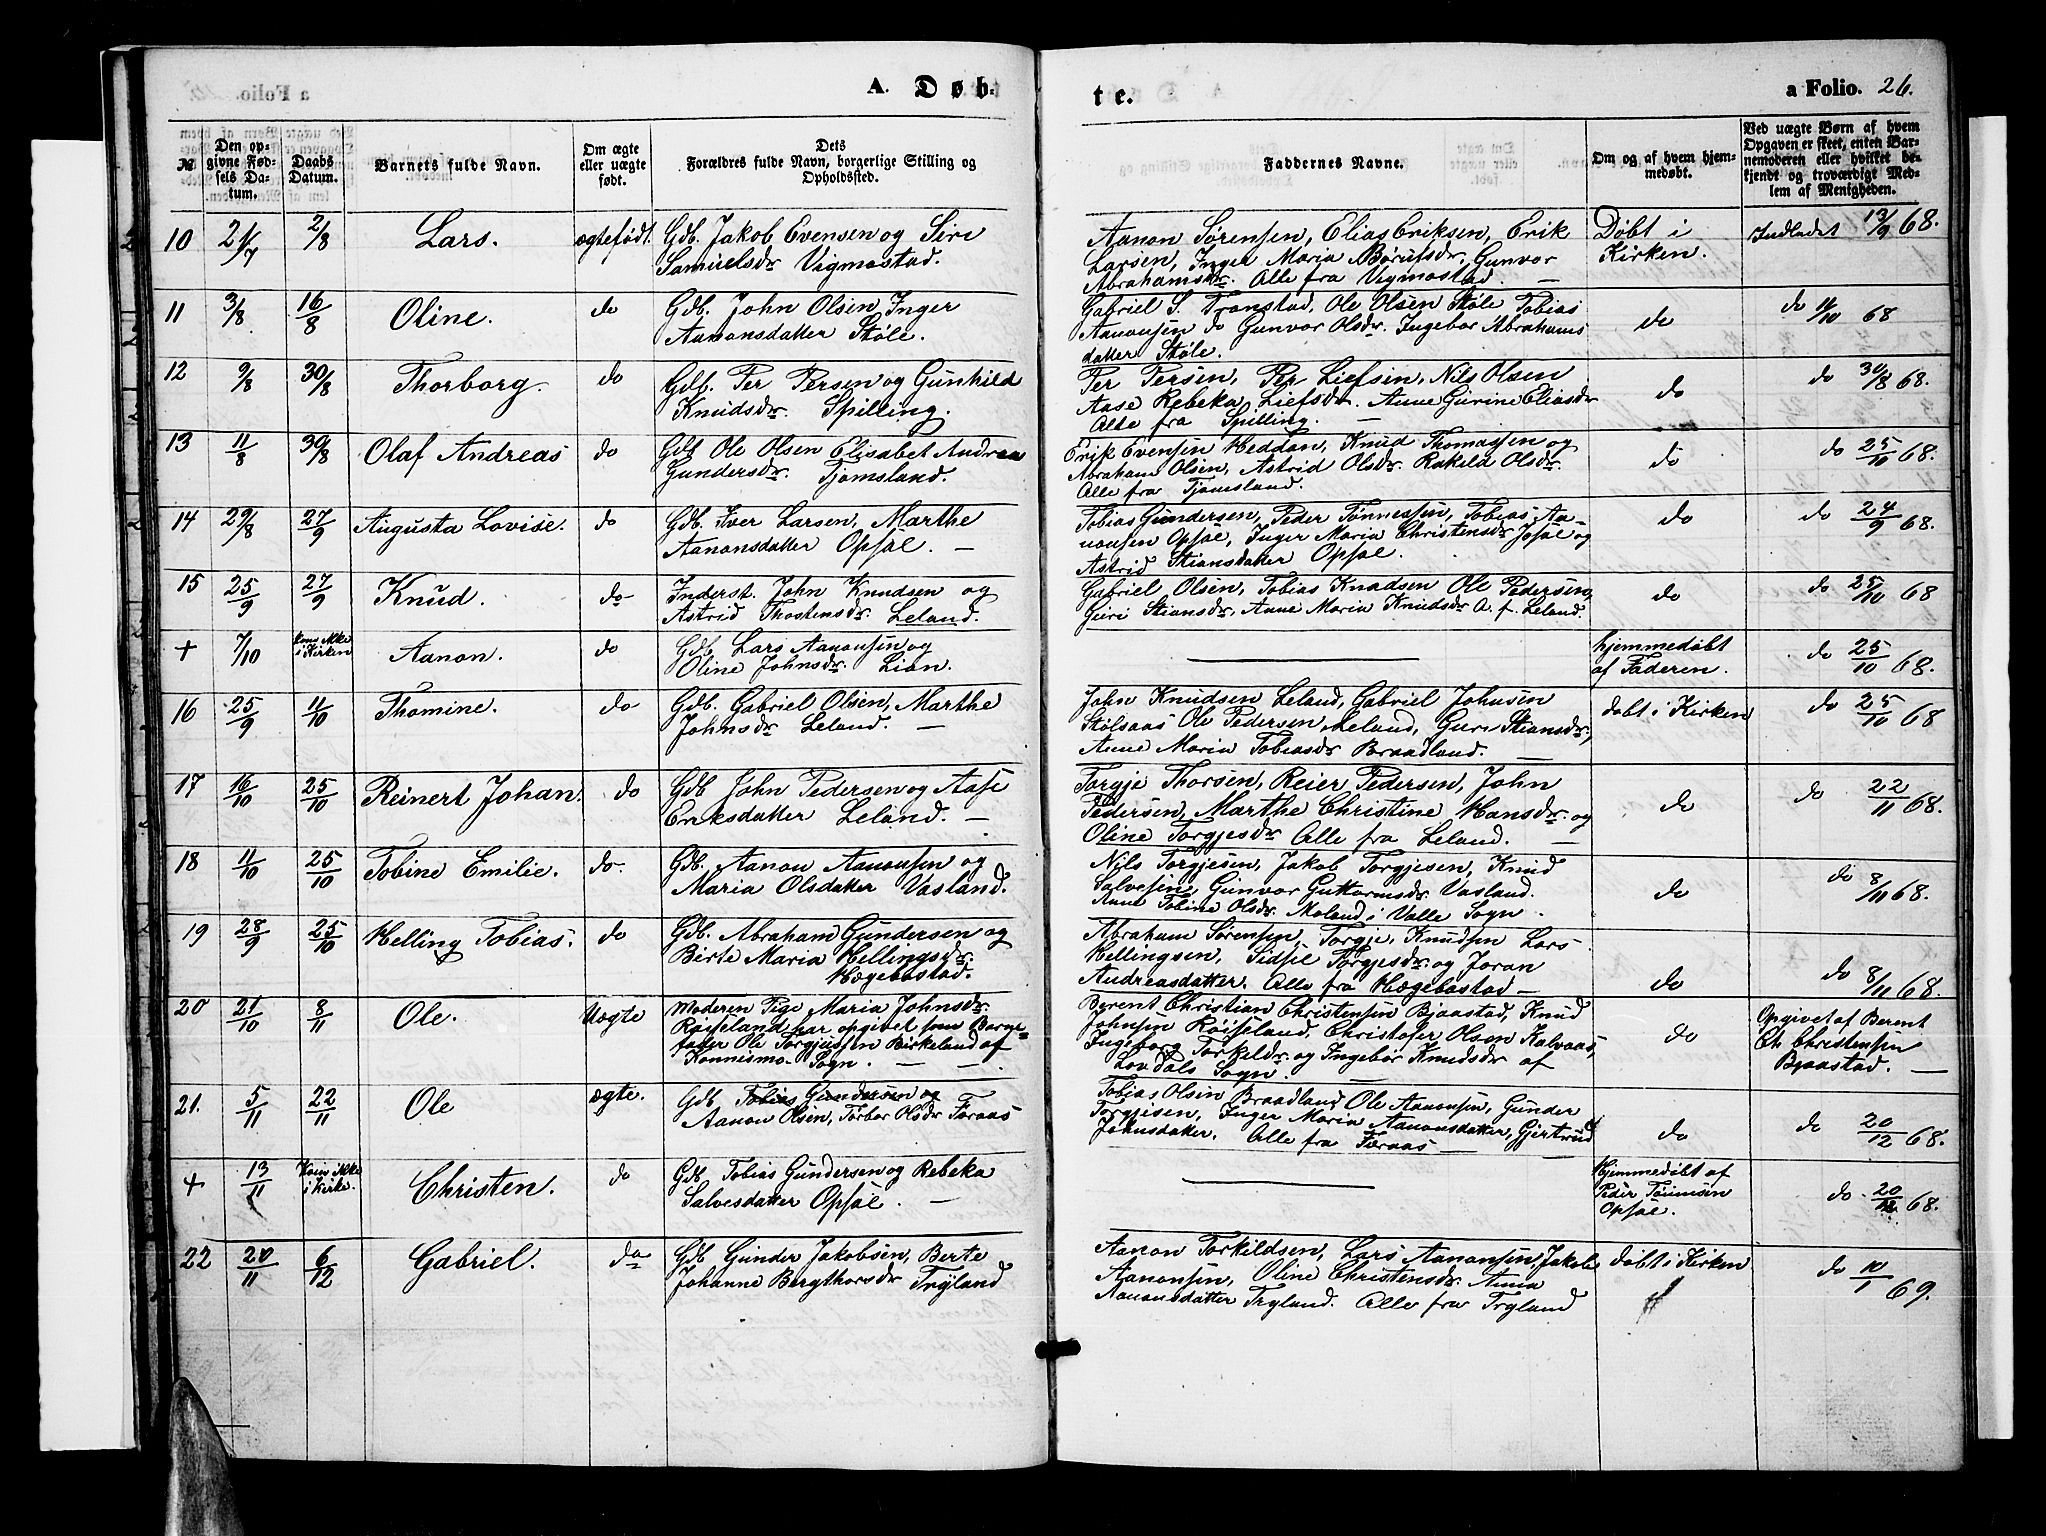 A. Døb-
te.
a Folio. 26.
№
Den opgivne Fødsels Datum.
Daabs Datum.
Barnets fulde Navn.
Om ægte eller uægte født.
Dets Forældres fulde Navn, borgerlige Stilling og Opholdssted.
Faddernes Navne.
Om og af hvem hjemmedøbt.
Ved uægte Børn af hvem Opgaven er skeet, enten Barnemoderen eller hvilket bekjendt og troværdigt Medlem af Menigheden.
10 21/7 2/8 Lars. ægtefødt. Gdb. Jakob Evensen og Siri
Samuelsdr Vigmostad.
Aanon Sørensen, Elias Eriksen, Erik
Larsen, Inger Maria Børufsdr, Gunvor
Abrahamsdr. Alle fra Vigmostad. —
Døbt i
Kirken.
Indledet 13/9 68.
11 3/8 16/8 Oline. do Gdb. John Olsen, Inger
Aanonsdatter Støle.
Gabriel S. Tronstad, Ole Olsen Støle Tobias
Aanonsen do Gunvor Olsdr, Ingebor Abrahams
datter Støle.
do
do 11/10 68
12 9/8 30/8 Thorborg. do Gdb. Per Persen og Gunhild
Knudsdr. Spilling.
Per Persen, Per Liefsen, Nils Olsen
Aase Rebeka Liefsdr. Anne Gurine Eliasdr
Alle fra Spilling. —
do
do 30/8 68.
13 11/8 30/8 Olaf Andreas do Gdb Ole Olsen Elisabet Andrea
Gundersdr. Tjomsland.
Erik Evensen Heddan, Knud Thomassen og
Abraham Olsen, Astrid Olsdr. Rakeld Olsdr.
Alle fra Tjomsland.
do
do 25/10 68.
14 29/8 27/9 Augusta Lovise. do Gdb. Iver Larsen, Marthe
Aanonsdatter Opsal. —
Tobias Gundersen, Peder Tønnessen, Tobias Aa-
nonsen Opsal, Inger Maria Christensdr Opsal og
Astrid Stiansdatter Opsal.
do
do 24/9 68.
15 25/9 27/9 Knud. do Inderst. John Knudsen og
Astrid Thostensdr. Leland.
Gabriel Olsen, Tobias Knudsen Ole Pedersen,
Guri Stiansdr, Anne Maria Knudsdr A. f. Leland.
do
do 25/10 68
+ 7/10 kom ikke
i Kirken Aanon. do Gdb. Lars Aanonsen og
Oline Johnsdr. Lian.
hjemmedøbt
af Faderen.
do 25/10 68.
16 25/9 11/10 Thomine. do Gdb. Gabriel Olsen, Marthe
Johnsdr Leland. —
John Knudsen Leland, Gabriel Johnsen
Stølsaas Ole Pedersen Leland, Guri Stiansdr,
Anne Maria Tobiasdr Braadland.
døbt i Kirken
do 25/10 68
17 16/10 25/10 Reinert Johan. do Gdb John Pedersen og Aase
Eriksdatter Leland. —
Torgje Thorsen, Reier Pedersen, John
Pedersen, Marthe Christine Hansdr. og
Oline Torgjesdr Alle fra Leland. —
do
do 22/11 68.
18 11/10 25/10 Tobine Emilie. do. Gdb. Aanon Aanonsen og
Maria Olsdatter Vasland.
Nils Torgjesen, Jakob Torgjesen, Knud
Salvesen, Gunvor Guttormsdr Vasland.
Anne Tobine Olsdr. Moland i Valle Sogn.
do
do 8/11 68.
19 28/9 25/10 Helling Tobias. do Gdb. Abraham Gundersen og
Birte Maria Hellingsdr.
Hægebostad.
Abraham Sørensen, Torgje Knudsen Lars
Hellingsen, Sidsel Torgjesdr. og Joran
Andreasdatter. Alle fra Hægebostad —
do
do 8/11 68.
20 21/10 8/11 Ole. Uægte Moderen Pige Maria Johnsdr.
Røiseland har opgivet som Barne-
fader Ole Torgjussen Birkeland af
Konnismo Sogn. — —
Berent Christian Christensen Bjaastad, Knud
Johnsen Røiseland, Christofer Olsen Kalvaas,
Ingeborg Torkeldr. og Ingebor Knudsdr af
Lovdals Sogn. —
do
Opgivet af Berent
Ch Christensen
Bjaastad. —
21. 5/11 22/11 Ole ægte. Gdb Tobias Gundersen og
Aanon Olsen, Torbor Olsdr Foraas
Tobias Olsen Braadland Ole Aanonsen, Gunder
Torgjesen, Inger Maria Aanonsdatter, Gjertrud
Johnsdatter. Alle fra Foraas —
do
do 20/12 68.
+ 13/11 Kom ikke
i Kirke. Christen. do Gdb Tobias Gundersen og Rebeka
Salvesdatter Opsal. —
Hjemmedøbt af
Peder Tønnesen
Opsal.
do 20/12 68.
22 20/11 6/12 Gabriel. do Gdb Gunder Jakobsen, Berte
Johanne Bergthorsdr Trygland
Aanon Torkildsen, Lars Aanonsen, Jakob
Aanonsen, Oline Christensdr. Anna
Aanonsdatter Trygland. Alle fra Trygland
døbt i Kirken
do 10/1 69.